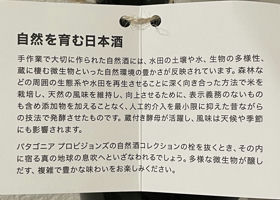 自然を育む日本酒
手作業で大切に作られた自然酒には、水田の土壌や水、生物の多様性、
蔵に棲む微生物といった自然環境の豊かさが反映されています。森林な
どの周囲の生態系や水田を再生させることに深く向き合った方法で米を
栽培し、天然の風味を維持し、向上させるために、表示義務のないもの
も含め添加物を加えることなく、人工的介入を最小限に抑えた昔ながら
の技法で発酵させたものです。蔵付き酵母が活躍し、風味は天候や季節
にも影響されます。
パタゴニア プロビジョンズの自然酒コレクションの栓を抜くとき、その内
に宿る真の地球の息吹へといざなわれるでしょう。多様な微生物が醸し
だす、複雑で豊かな味わいをお楽しみください。